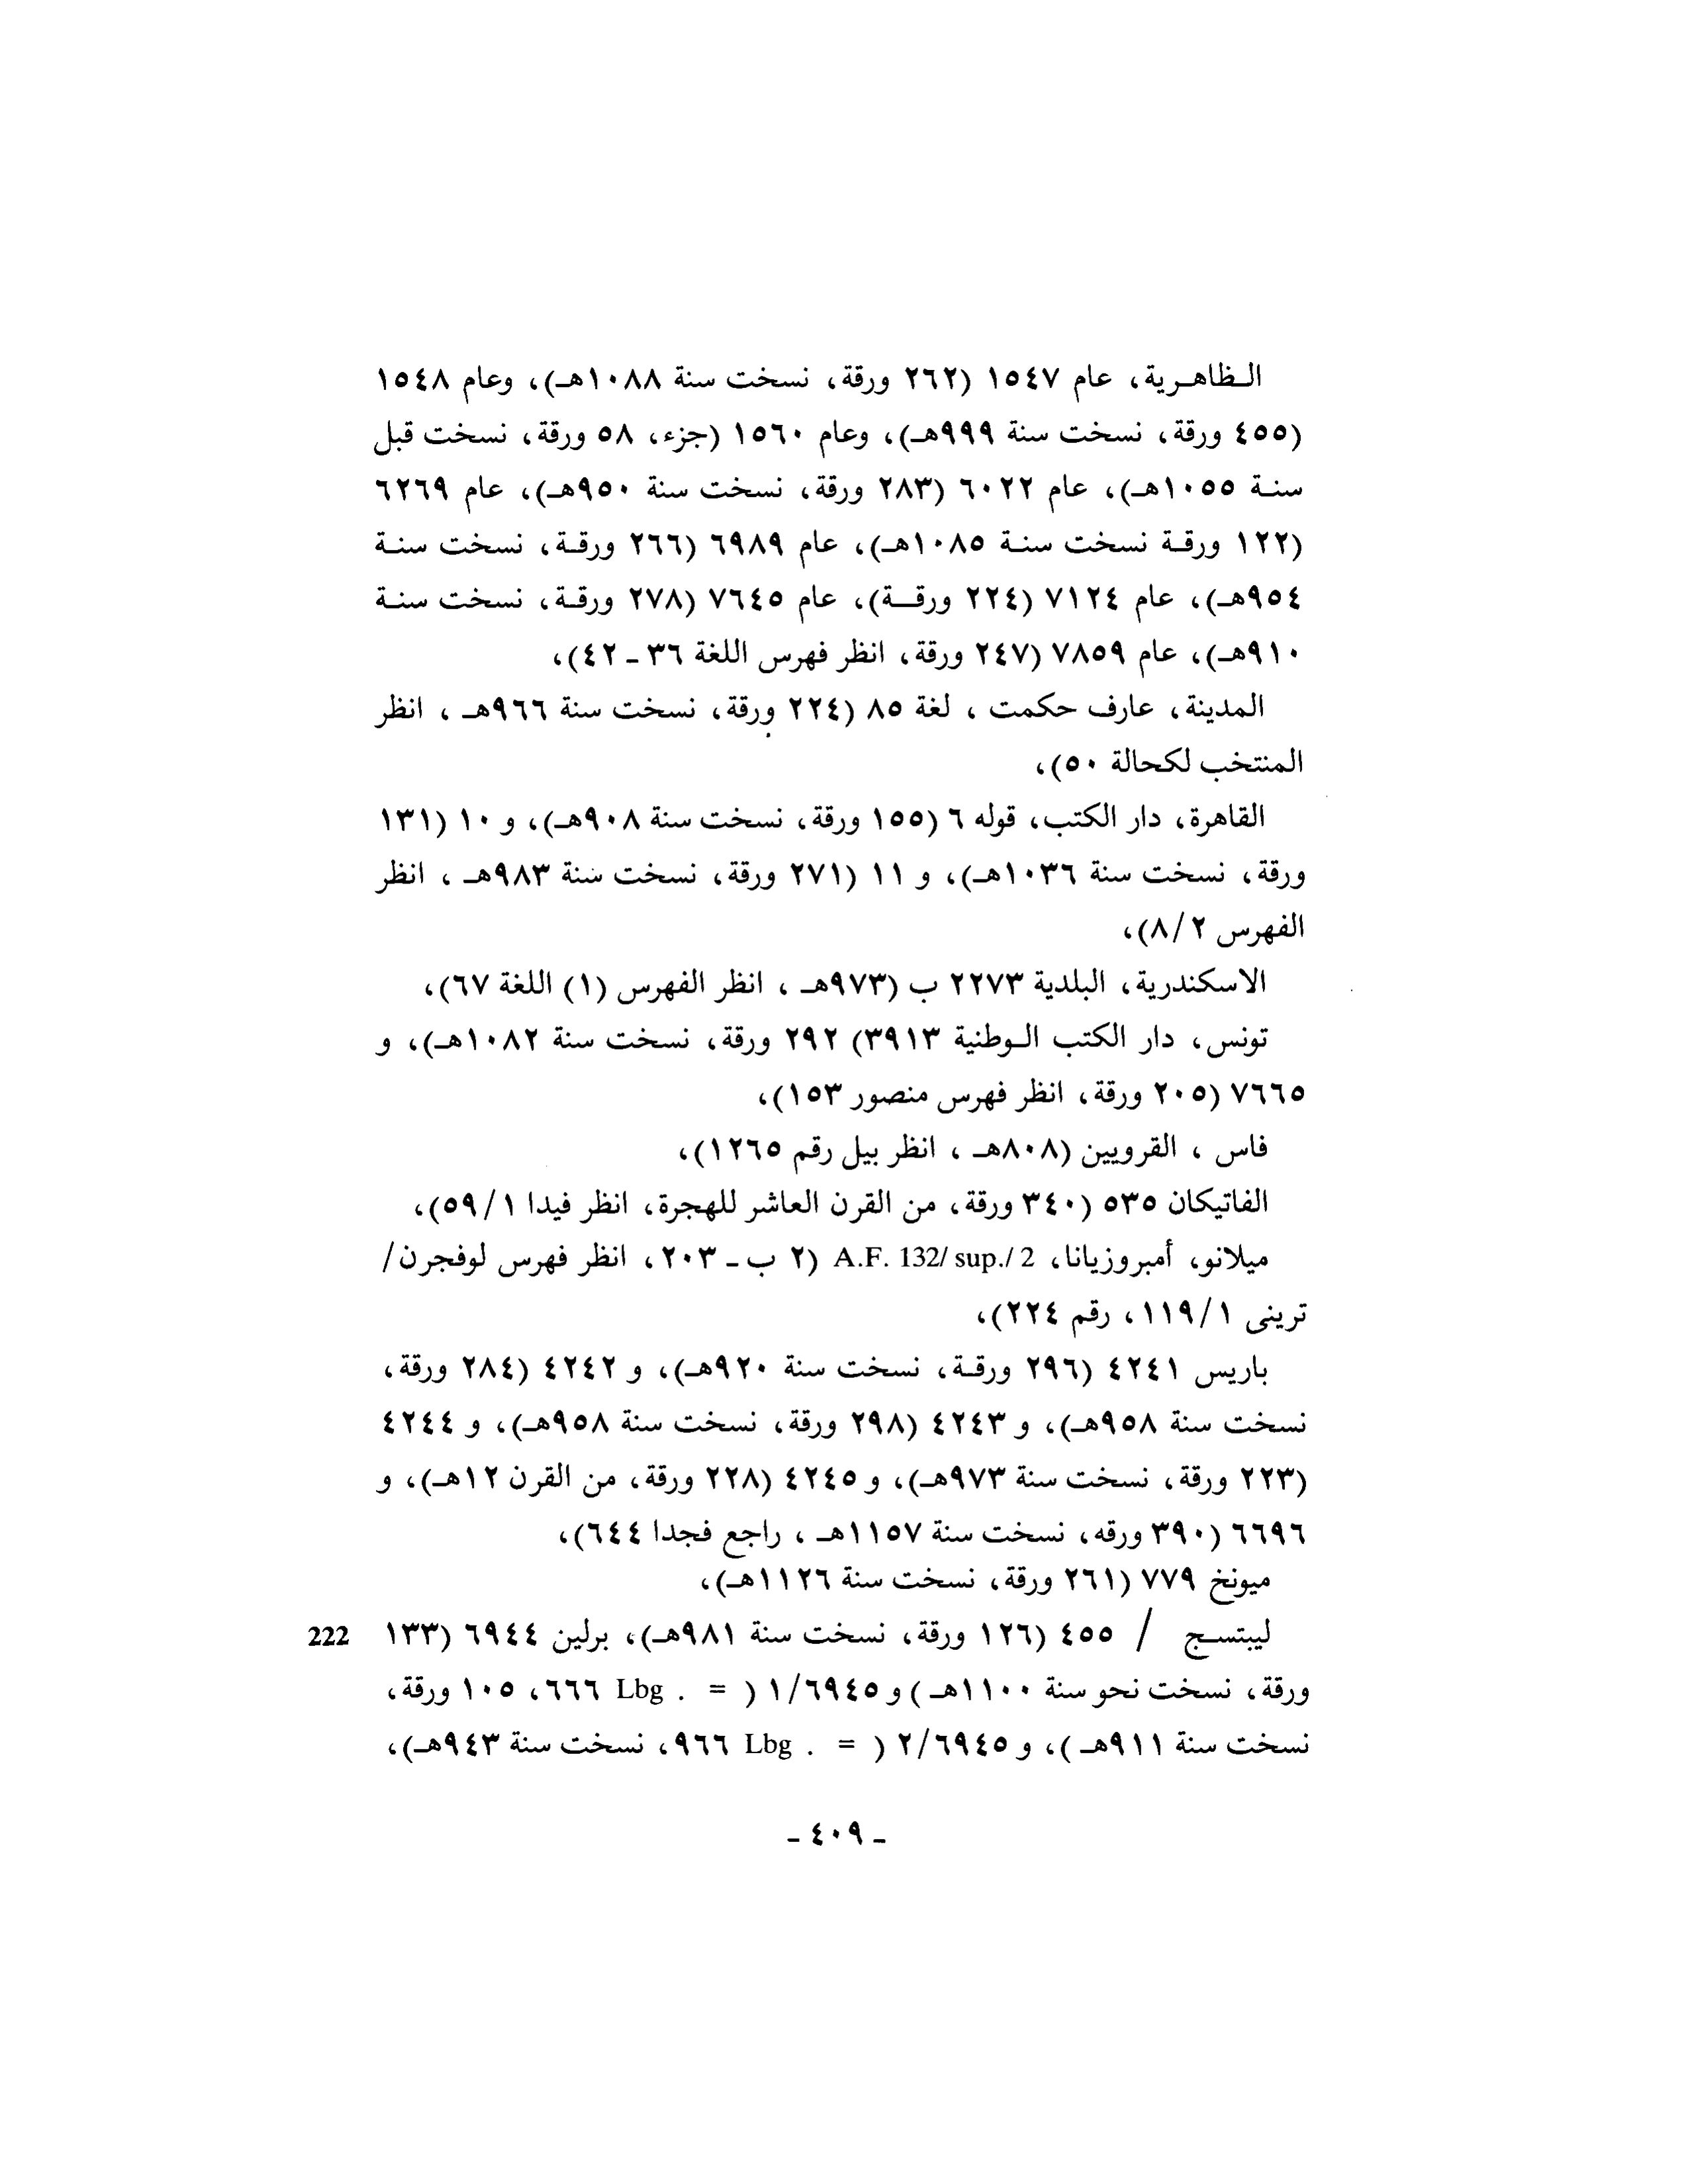 الظاهرية، عام ١٥٤٧ (٢٦٢ ورقة، نسخت سنة ١٠٨٨هـ)، وعام ١٥٤٨
(٤٥٥ ورقة، نسخت سنة ٩٩٩هـ)، وعام ١٥٦٠ (جزء، ٥٨ ورقة، نسخت قبل
سنة ١٠٥٥هـ)، عام ٦٠٢٢ (٢٨٣ ورقة، نسخت سنة ٩٥٠هـ)، عام ٦٢٦٩
(١٢٢ ورقة نسخت سنة ١٠٨٥هـ)، عام ٦٩٨٩ (٢٦٦ ورقة، نسخت سنة
٩٥٤هـ)، عام ٧١٢٤ (٢٢٤ ورقة)، عام ٧٦٤٥ (٢٧٨ ورقة، نسخت سنة
٩١٠هـ)، عام ٧٨٥٩ (٢٤٧ ورقة، انظر فهرس اللغة ٣٦ - ٤٢)،
المدينة، عارف حكمت ، لغة ٨٥ (٢٢٤ ورقة، نسخت سنة ٩٦٦هـ ، انظر
المنتخب لكحالة ٥٠)،
القاهرة، دار الكتب، قوله ٦ (١٥٥ ورقة، نسخت سنة ٩٠٨هـ)، و ١٠ (١٣١
ورقة، نسخت سنة ١٠٣٦هـ)، و ١١ (٢٧١ ورقة، نسخت سنة ٩٨٣هـ ، انظر
الفهرس ٨/٢)،
الاسكندرية، البلدية ٢٢٧٣ ب (٩٧٣هـ ، انظر الفهرس (١) اللغة ٦٧)،
تونس، دار الكتب الوطنية ٣٩١٣) ٢٩٢ ورقة، نسخت سنة ١٠٨٢هـ)، و
٧٦٦٥ (٢٠٥ ورقة، انظر فهرس منصور ١٥٣)،
فاس ، القرويين (٨٠٨هـ ، انظر بيل رقم ١٢٦٥)،
الفاتيكان ٥٣٥ (٣٤٠ ورقة، من القرن العاشر للهجرة، انظر فيدا ٥٩/١)،
ميلانو، أمبروزيانا، A.F. 132/ sup./ 2 (٢ ب - ٢٠٣، انظر فهرس لوفجرن/
ترينى ١١٩/١، رقم ٢٢٤)،
باريس ٤٢٤١ (٢٩٦ ورقة، نسخت سنة ٩٢٠هـ)، و ٤٢٤٢ (٢٨٤ ورقة،
نسخت سنة ٩٥٨هـ)، و ٤٢٤٣ (٢٩٨ ورقة، نسخت سنة ٩٥٨هـ)، و ٤٢٤٤
(٢٢٣ ورقة، نسخت سنة ٩٧٣هـ)، و ٤٢٤٥ (٢٢٨ ورقة، من القرن ١٢هـ)، و
٦٦٩٦ (٣٩٠ ورقه، نسخت سنة ١١٥٧هـ ، راجع فجدا ٦٤٤)،
ميونخ ٧٧٩ (٢٦١ ورقة، نسخت سنة ١١٢٦هـ)،
ليبتسج / ٤٥٥ (١٢٦ ورقة، نسخت سنة ٩٨١هـ)، برلين ٦٩٤٤ (١٣٣ 222
ورقة، نسخت نحو سنة ١١٠٠هـ ) و ١/٦٩٤٥ ( = Lbg . ٦٦٦، ١٠٥ ورقة،
نسخت سنة ٩١١هـ )، و ٢/٦٩٤٥ ( = Lbg . ٩٦٦، نسخت سنة ٩٤٣هـ)،
- ٤٠٩ -